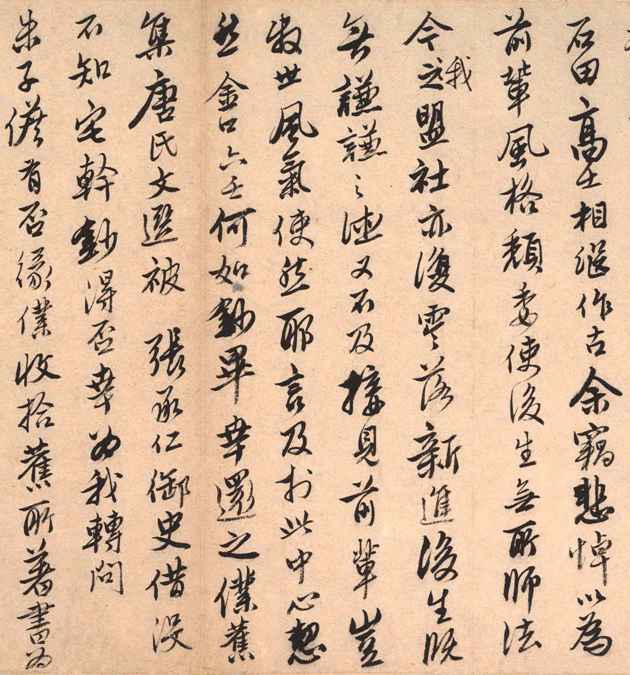 石田高士相繼作古余竊悲悼以為
前輩風格頹委使後生無所師法
今我之盟社亦復零落新進後生既
無謙謙之德又不及接見前輩豈
世風氣使然耶言及於此中心
然金口六壬何如鈔畢幸還之僕舊
集唐氏文選被張承仁御史借沒
不知宅幹鈔得否幸為我轉問
朱子儋有否緣僕收拾舊所著書為